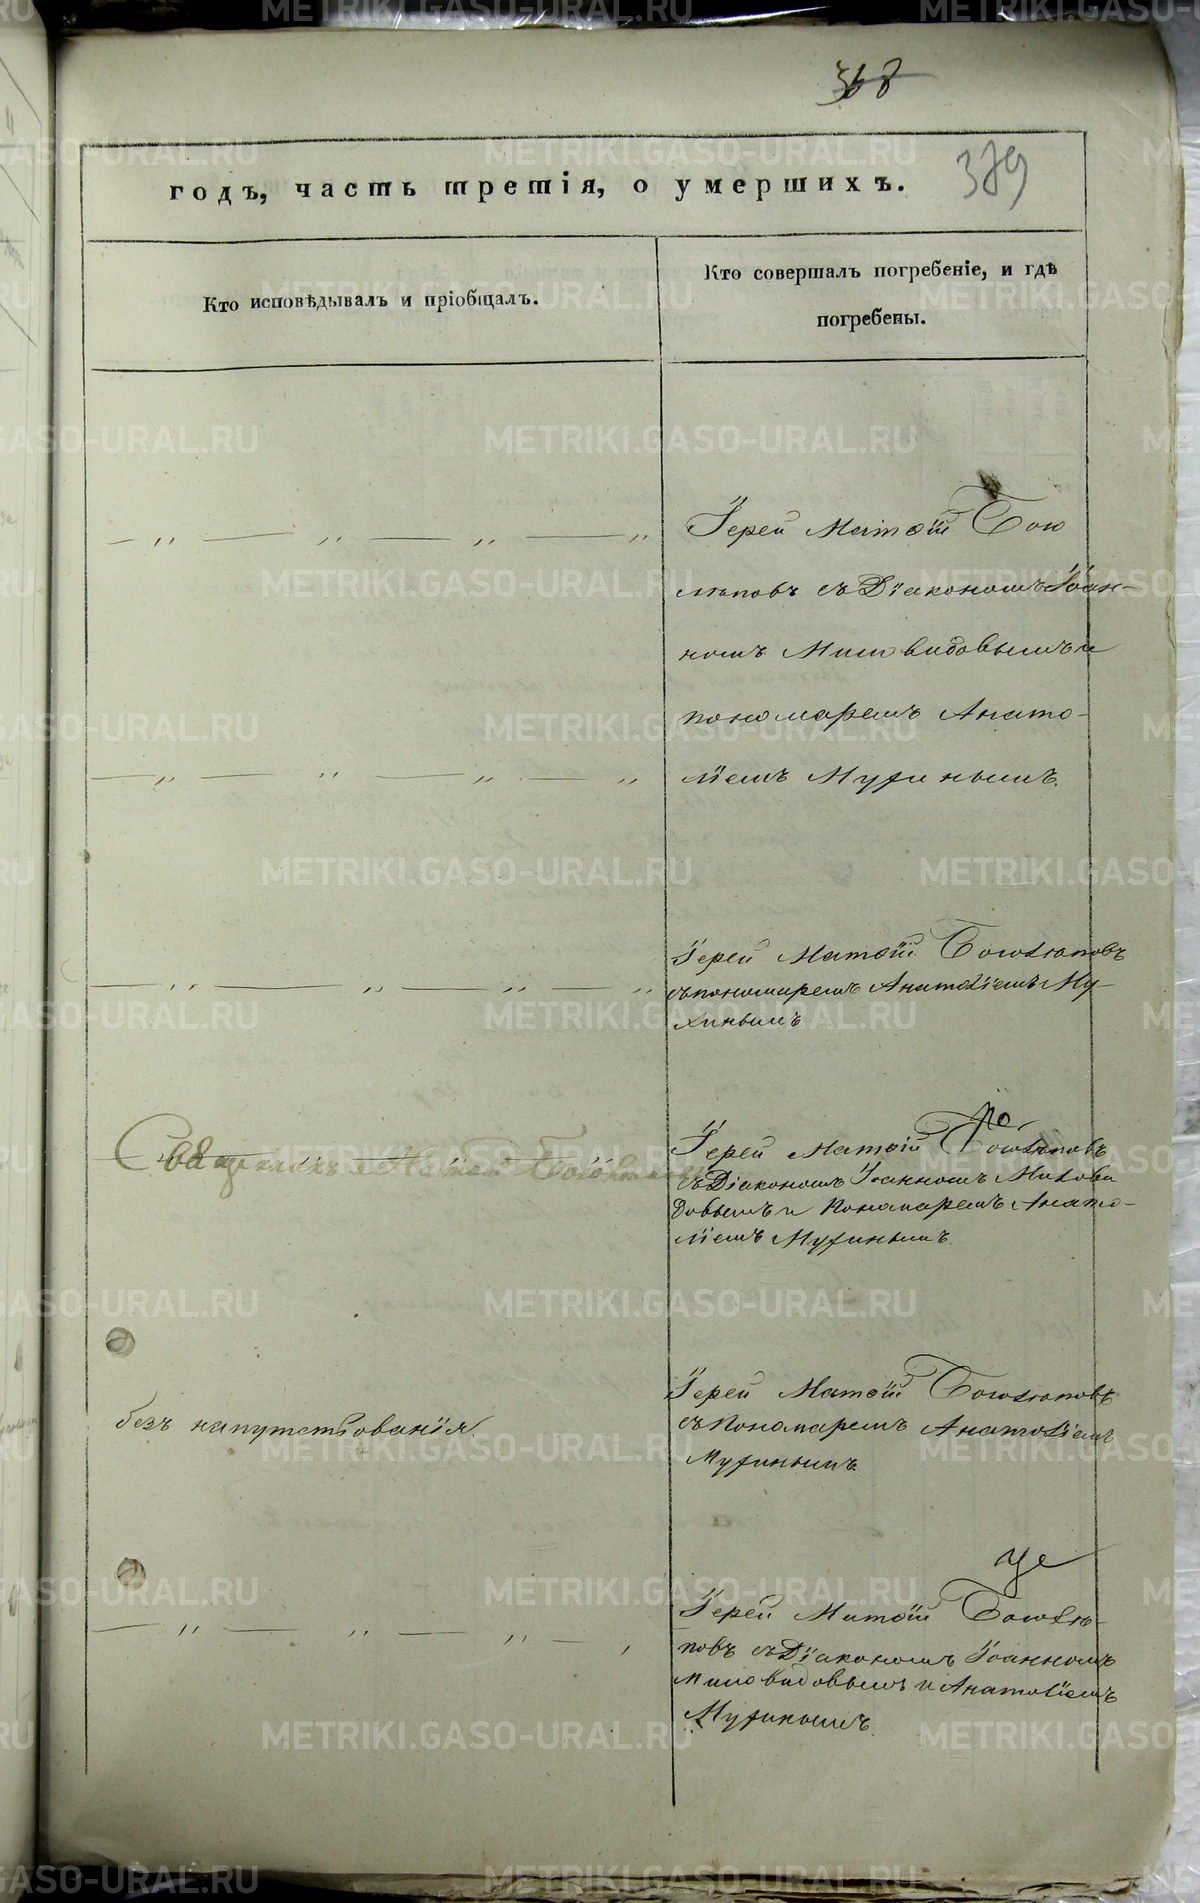 368
379
годъ, часть третія, о умершихъ.
Кто исповѣдывалъ и пріобщалъ.
Кто совершалъ погребеніе, и гдѣ
погребены.
Іерей Матѳій Бого
люповъ съ Діакономъ Іоан-
номъ Миловидовымъ и
пономаремъ Анато-
ліемъ Мухинымъ.
Іерей Матѳій Боголюповъ
съ пономаремъ Анатоліемъ Му-
хинымъ
Священникъ Матѳей
по
Іерей Матѳій Боголюповъ
съ Діакономъ Іоанномъ Милови
довымъ и Пономаремъ Анато-
ліемъ Мухинымъ.
безъ напутствованія.
Іерей Матѳій Боголюповъ
съ Пономаремъ Анатоліемъ
Мухинымъ
Іерей Матѳій Боголю-
повъ съ Діакономъ Іоанномъ
Миловидовымъ и Анатоліемъ
Мухинымъ.
METRIKI.GASO-URAL.RU